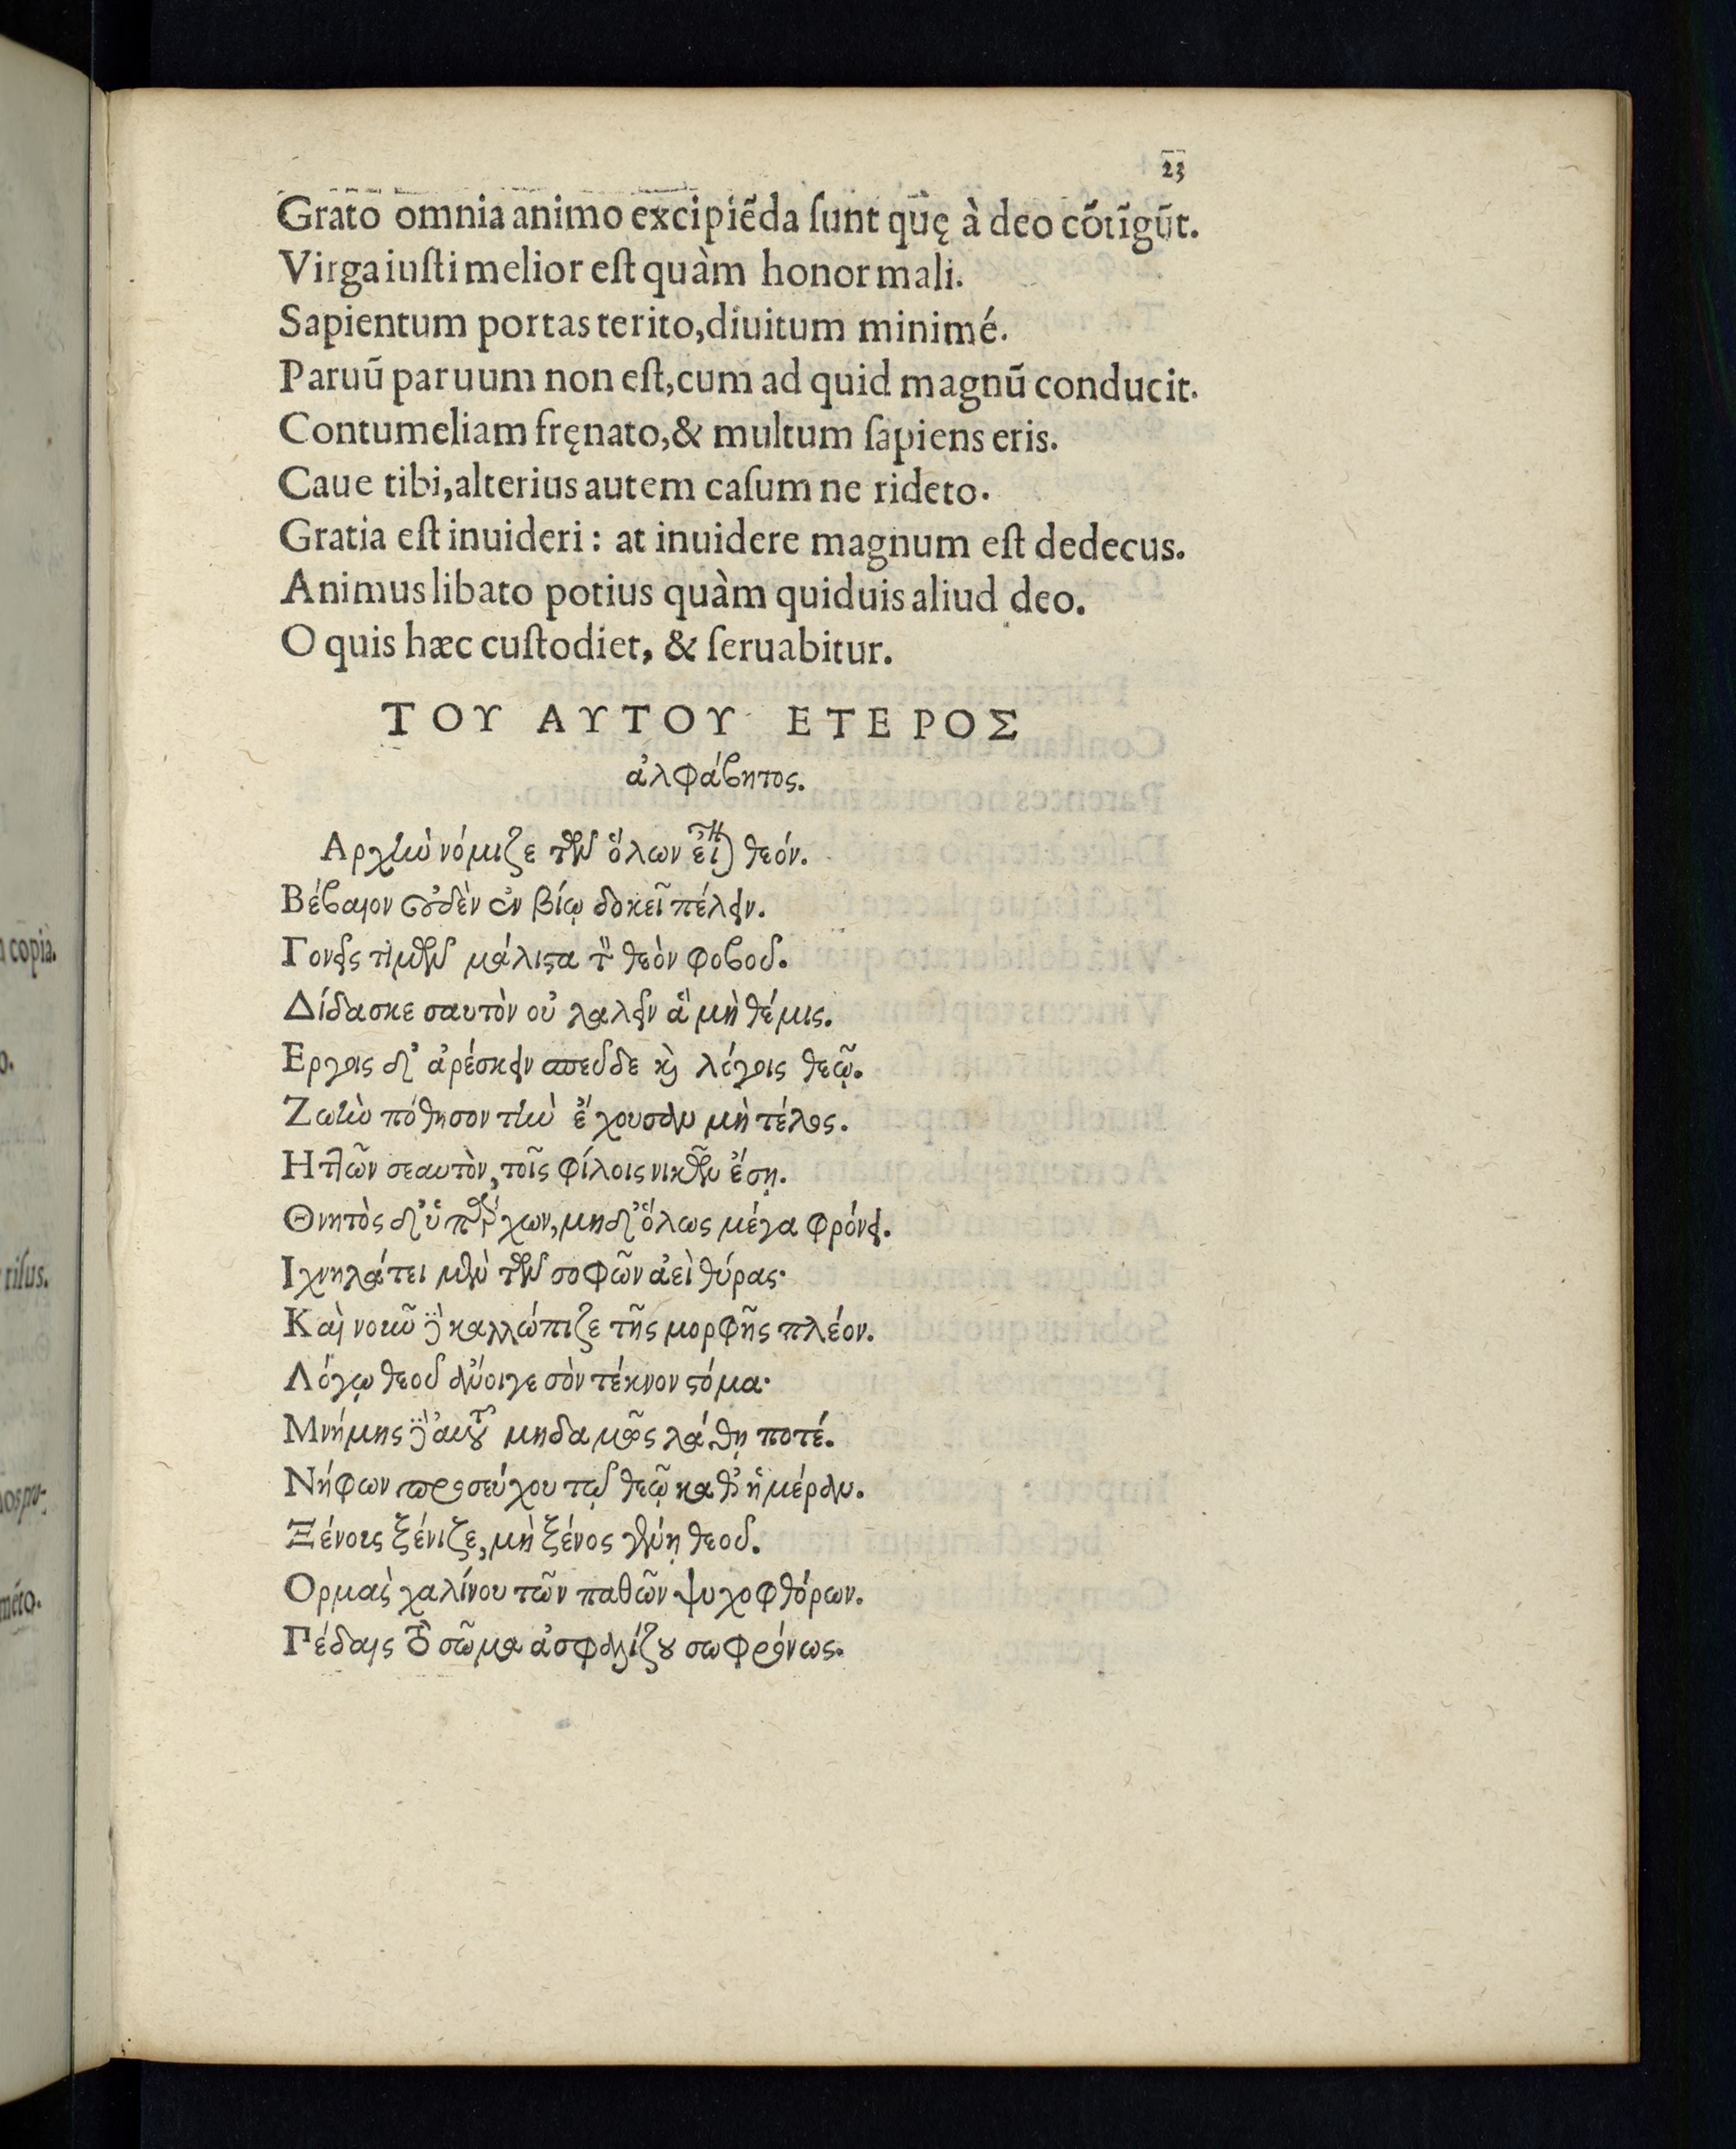 23
Grato omnia animo excipiẽda ſunt quę à deo cõtĩgũt.
Virga iuſti melior eſt quàm honor mali.
Sapientum portas terito, diuitum minimé.
Paruũ paruum non eſt, cum ad quid magnũ conducit.
Contumeliam fręnato, & multum ſapiens eris.
Caue tibi, alterius autem caſum ne rideto.
Gratia eſt inuideri: at inuidere magnum eſt dedecus.
Animus libato potius quàm quiduis aliud deo.
O quis hæc cuſtodiet, & ſeruabitur.
ΤΟΥ ΑΥΤΟΥ ΕΤΕΡΟΣ
ἀλφάβητος.
Αρχὴν νόμιζε τῶν ὅλων εἶναι θεόν.
Βέβαιον οὐδὲν ἐν βίῳ δοκεῖ πέλειν.
Γονεῖς τιμῶν μάλιστα τὸν θεὸν φοβοῦ.
Δίδασκε σαυτὸν οὐ λαλεῖν ἃ μὴ θέμις.
Εργοις δ' ἀρέσκειν σπεῦδε καὶ λόγοις θεῷ.
Ζωὴν πόθησον τὴν ἔχουσαν μὴ τέλος.
Ητλῶν σεαυτὸν, τοῖς φίλοις νικῶν ἔσῃ.
Θνητὸς δ' ὑπάρχων, μηδ' ὅλως μέγα φρόνει.
Ιχνηλάτει μὲν τῶν σοφῶν ἀεὶ θύρας·
Καὶ νοῦν γὲ καλλώπιζε τῆς μορφῆς πλέον.
Λόγῳ θεοῦ ἄνοιγε σὸν τέκνον στόμα·
Μνήμης γὰρ αὐτοῦ μηδαμῶς λάθῃ ποτέ.
Νήφων προσεύχου τῷ θεῷ καθ' ἡμέραν.
Ξένους ξένιζε, μὴ ξένος γένῃ θεοῦ.
Ορμὰς χαλίνου τῶν παθῶν ψυχοφθόρων.
Πέδαις τὸ σῶμα ἀσφαλίζου σωφρόνως.